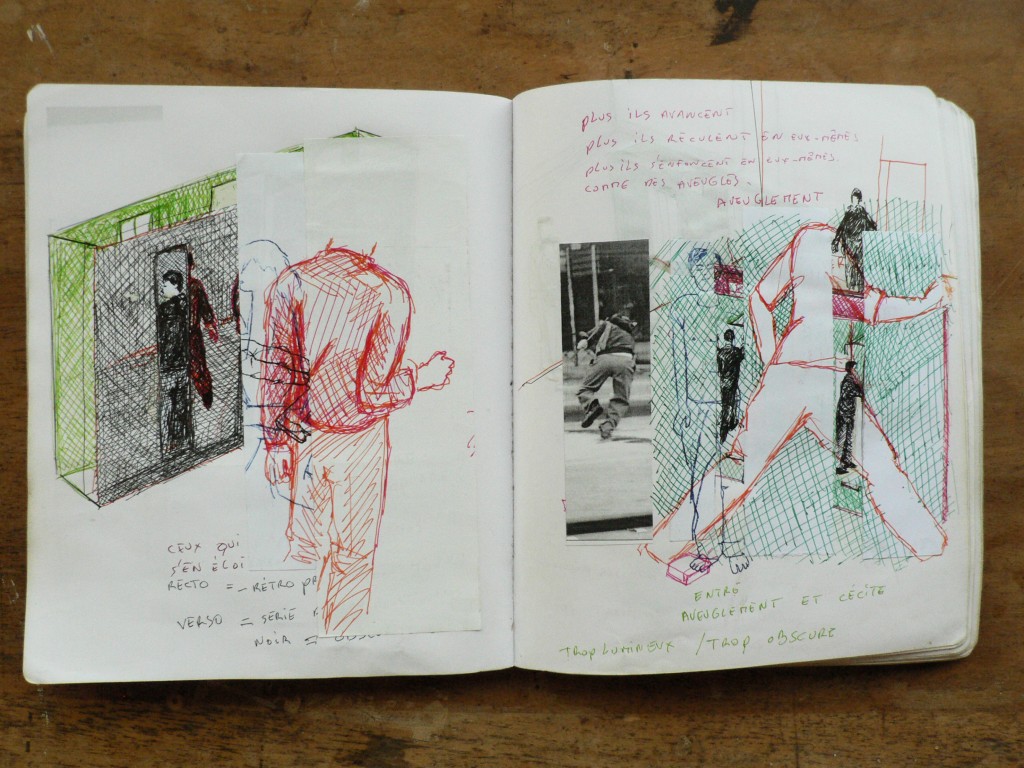 CEUX QUI
S'EN ÉLOI
RECTO = RÉTRO PR
VERSO = SÉRIE
NOIR =
PLUS ILS AVANCENT
PLUS ILS RECULENT EN EUX-MÊMES
PLUS ILS S'ENFONCENT EN EUX-MÊMES.
COMME DES AVEUGLES.
AVEUGLEMENT
ENTRE
AVEUGLEMENT ET CÉCITE
TROP LUMINEUX / TROP OBSCURE